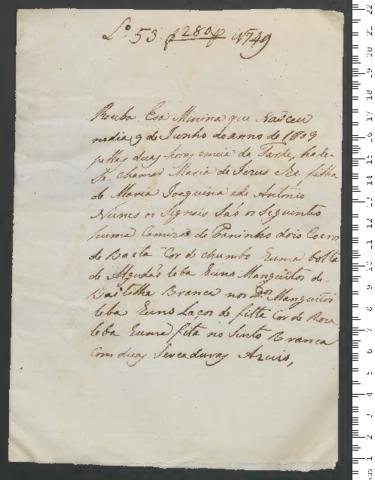 Lº 53 f 280 Nº 1749
Reseba Esa Minina que Nasceu
no dia 9 de Junho de anno de 1809
pellas duas horas emeia da Tarde, hade-
Se chamar Maria de Jezus he filha
de Maria Joaquina ede António
Nunes os Signais Saõ os Seguintes
huma Camiza de Paninho dois Coeros
de Baeta Cor de chumbo Euma
de Algudaõ leba Euns Manguitos de
Branca nos Manguitos
leba Euns Laços de fitta Cor de Roza
leba Euma fita no Sinto Branca
Com duas Sercaduras Azuis,